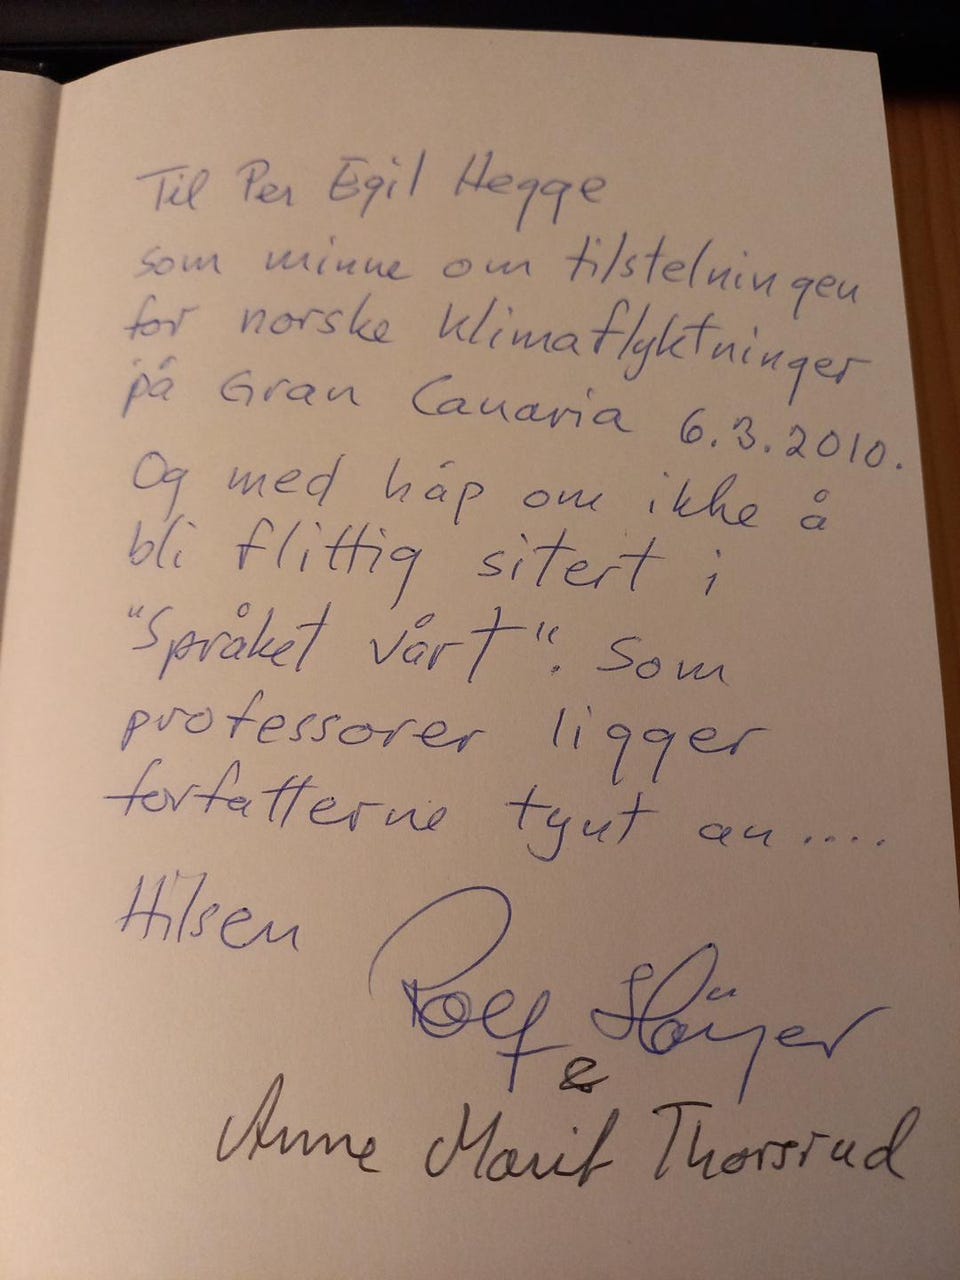 Til Per Egil Hegge
som minne om tilstelningen
for norske klimaflyktninger
på Gran Canaria 6.3.2010.
Og med håp om ikke å
bli flittig sitert i
"Språket vårt". Som
professorer ligger
forfatterne tynt an....
Hilsen
Rolf Höyer
&
Anne Marit Thorsrud